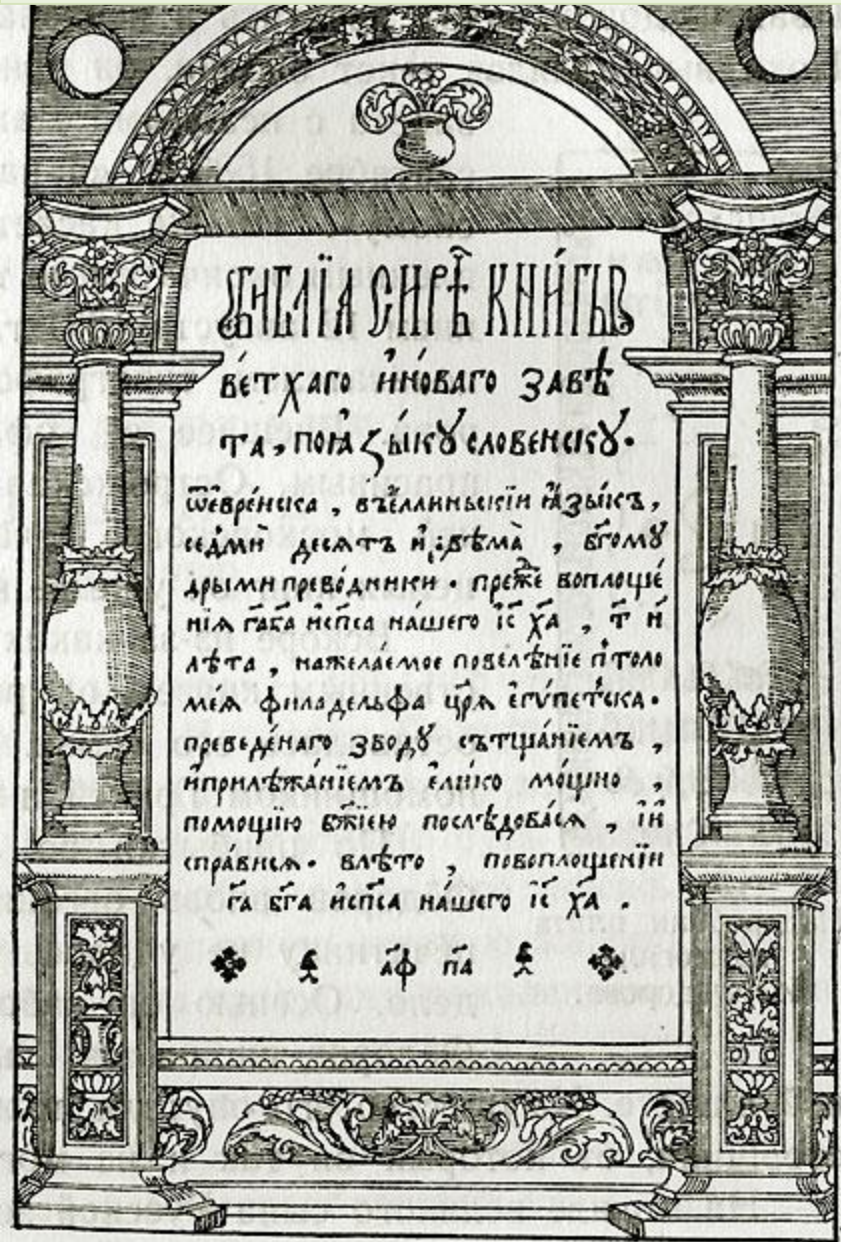 БИБЛЇА СИРѢ҇Ч КНИ́ГЫ
ВЕ́ТХАГО И҆НО́ВАГО ЗАВѢ
ТА, ПОꙖЗЫ́КꙊ СЛОВЕНСКꙊ.
ѿевре́нска, въе́ллиньскїи ꙗ҆зы́къ,
се́дмию десѧтъ и҆двѣма̀, бг҃омꙋ
дрыми преводники. пре́же воплоще́
нїѧ гд҃а бг҃а и҆сп҃са на́шего і҆с҃ ха҃, т҃ и҆
лѣ́та, нажела́емое повелѣ́нїе п̾толо
ме́ѧ филаде́льфа цр҃ѧ е҆гѵ́петска.
преведе́наго зводꙋ сътща́нїемъ,
и҆прилѣжа́нїемъ е҆ли́ко мо́щно,
помощїю бж҃їею послѣ́довасѧ, і҆и
спра́висѧ. влѣ́то, повоплоще́нїи
гд҃а бг҃а и҆сп҃са на́шего і҆с҃ ха҃.
҂аф па